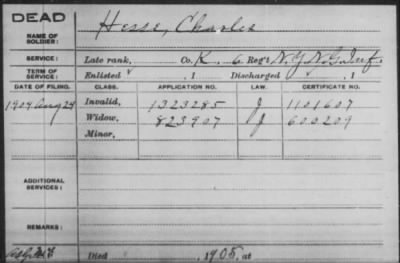 DEAD
Hesse, Charles
NAME OF SOLDIER:
SERVICE: Late rank, Co. K. 6 Reg't N.Y.N.G. Inf.
TERM OF SERVICE: Enlisted , 1 Discharged , 1
DATE OF FILING. CLASS. APPLICATION NO. LAW. CERTIFICATE NO.
1904 Aug 24 Invalid, 1323285 J 1101607
Widow, 823907 J 600209
Minor,
ADDITIONAL SERVICES:
REMARKS:
Died , 1905, at